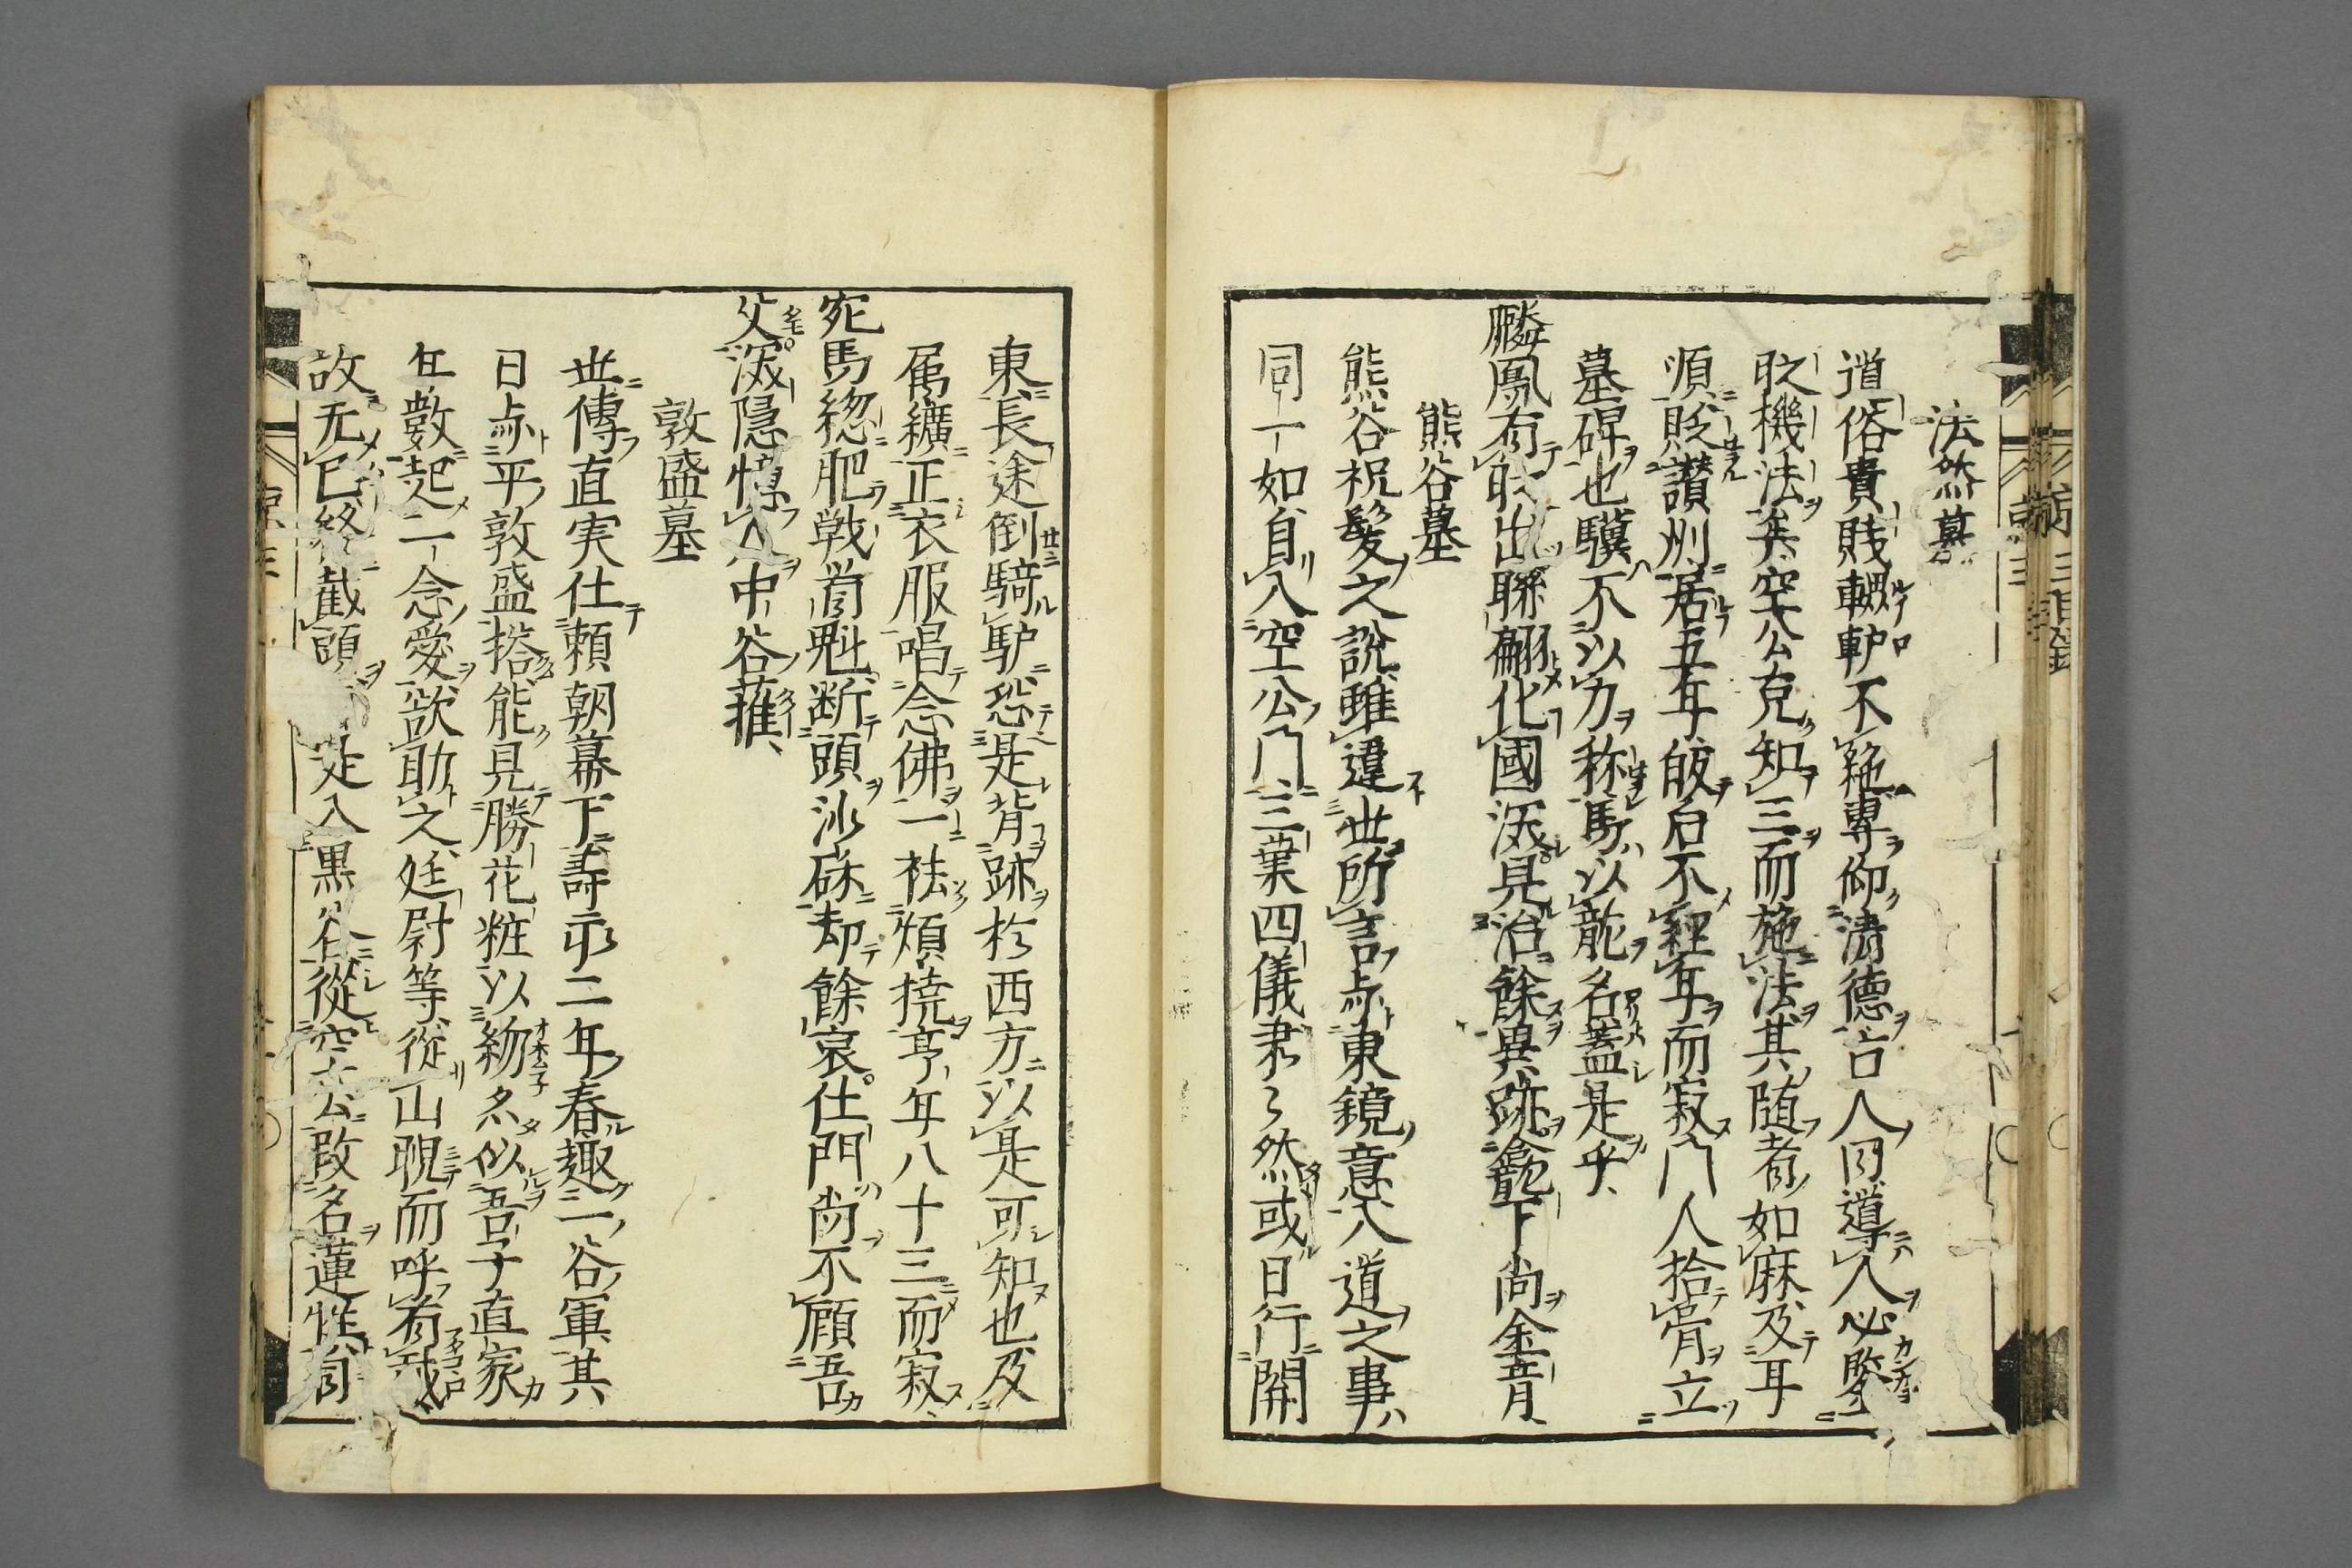 法然墓
道俗貴賤輾轤不絶專仰清德言人同導入必鑒
取機法矣空公克知三而施法其随者如麻及耳
順貶讃州居五年皈石不經年而寂門人拾骨立
墓碑也驥不以力称馬以龍名蓋是乎
麟鳳有時出聯翩化國涯見治餘異跡龕下尚金青
熊谷墓
熊谷祝髪之説雖違世所言亦東鏡意入道之事
同一如自入空公門三業四儀肃々然或日行関
東長途倒騎馿恐是背跡於西方以是可知也及
属纊正衣服唱念佛一袪煩撓亨年八十三而寂
宛馬総肥戦肯魁断頭沙硃却餘哀仕門尚不顧吾
父涯隠憤入中谷蓷
敦盛墓
世傳直実仕頼朝幕下壽永二年春趣一谷軍其
日亦平敦盛搭能見勝花粧以幼忽似吾子直家
年數起一念愛欲助之廷尉等從山覗而呼有弐
故无已終截頭是入黒谷從空公改名蓮性